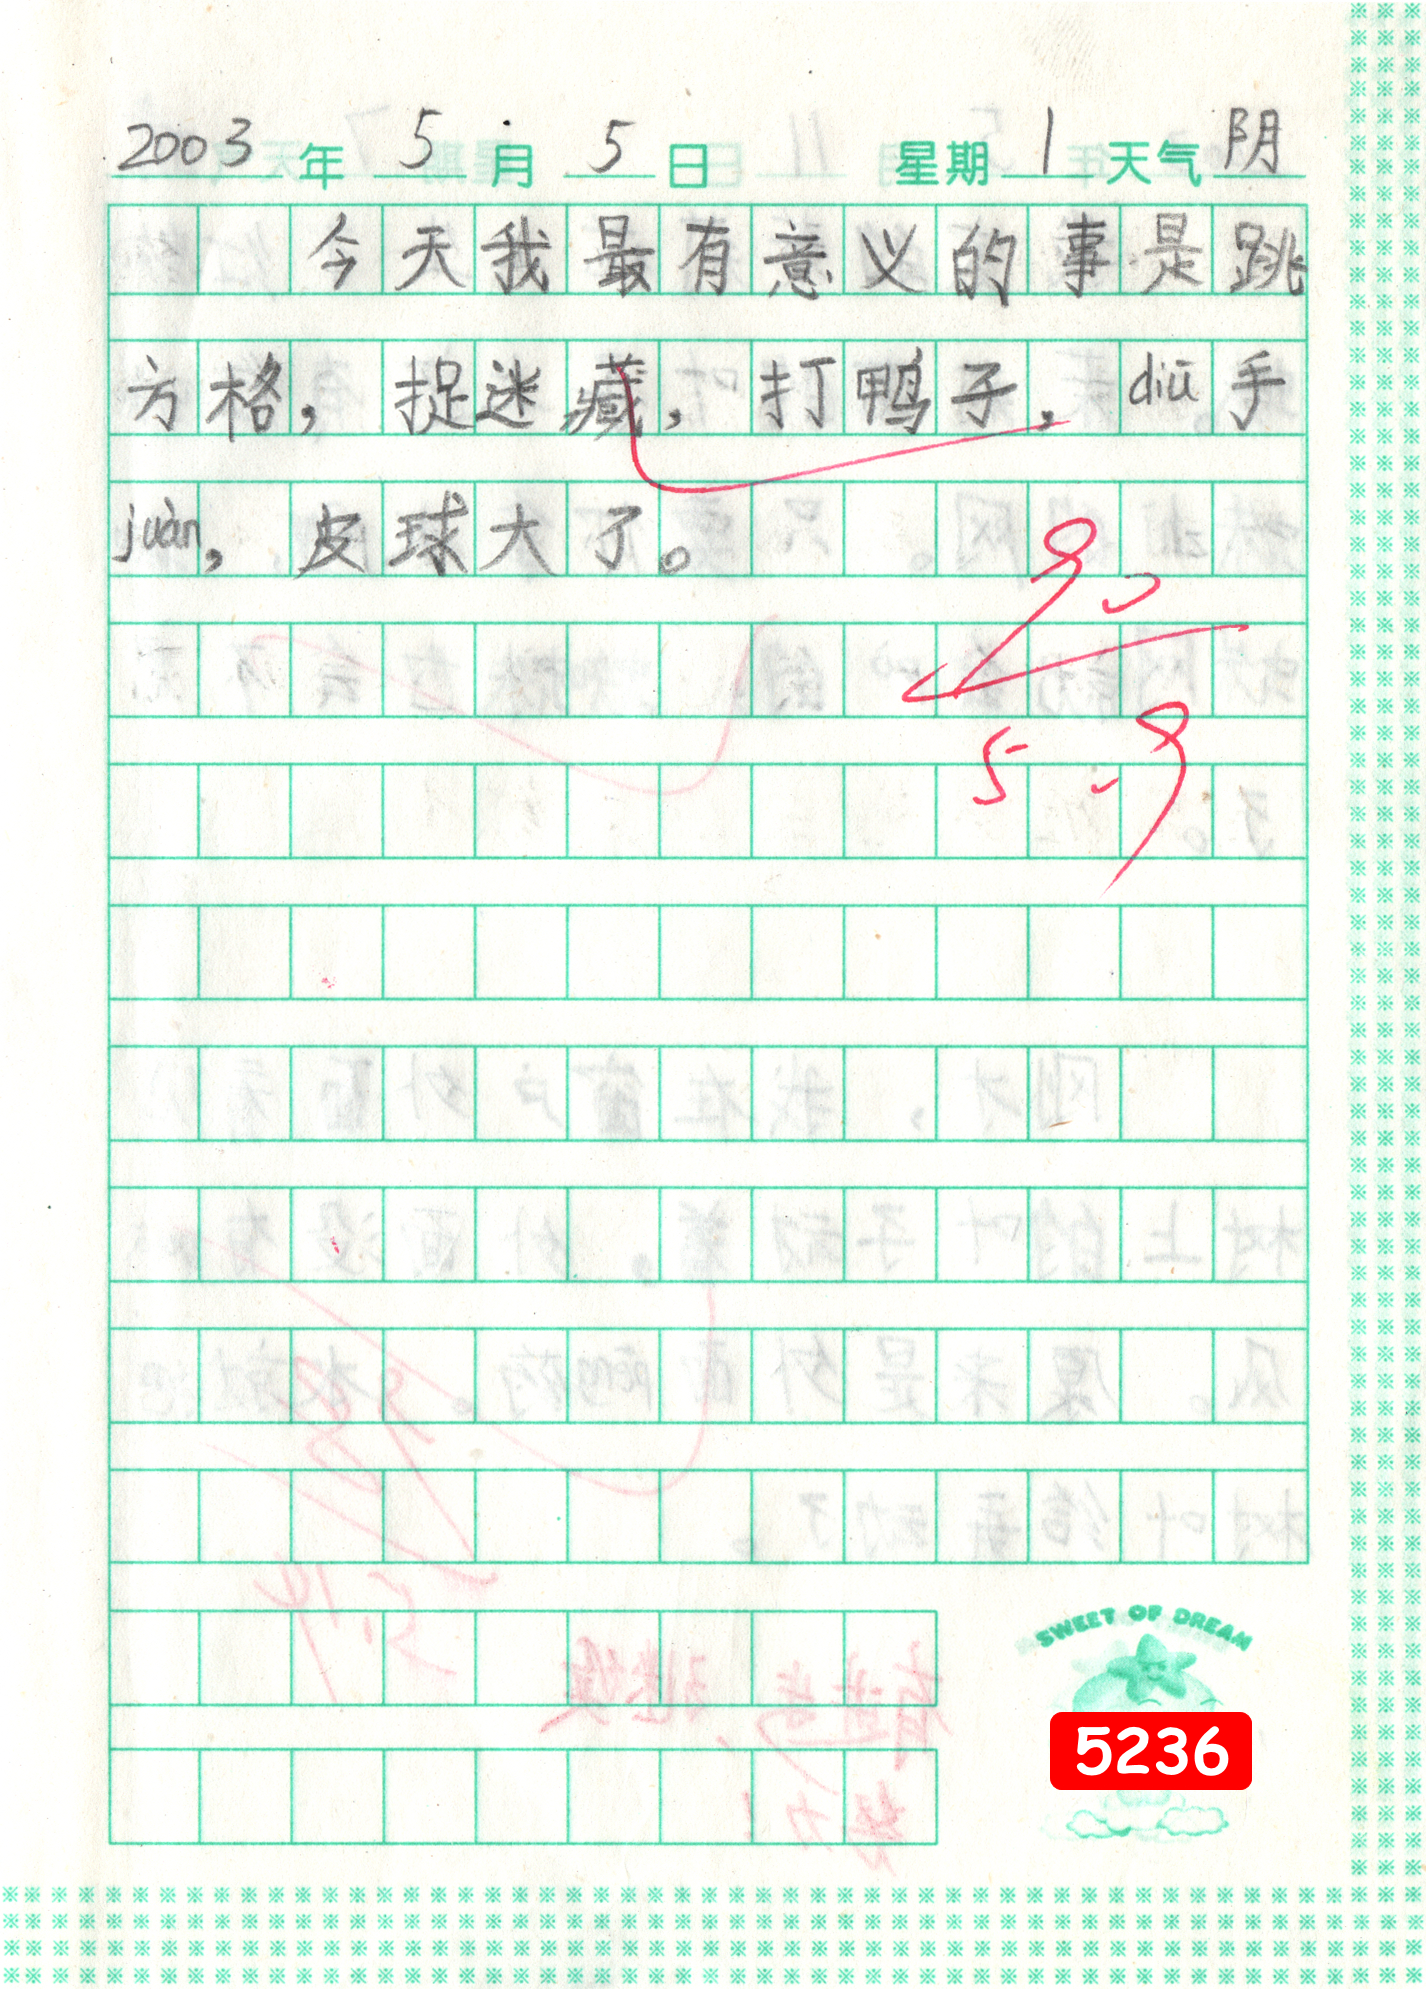 2003年5月5日 星期1天气阴
今天我最有意义的事是跳
方格，捉迷藏，打鸭子，diū手
juàn，皮球大了。
90
5.9
SWEET OF DREAM
5236